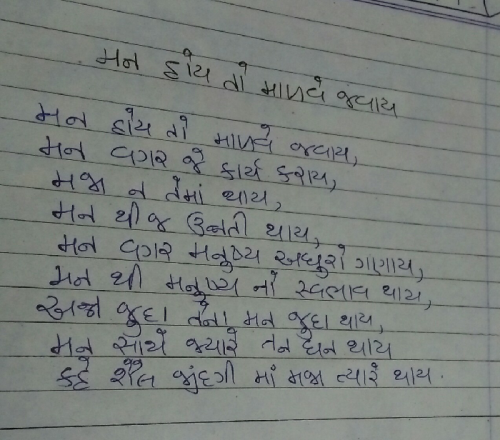 મન હોય તો માળવે જવાય
મન હોય તો માળવે જવાય,
મન વગર જે કાર્ય કરાય,
મજા ન તેમાં થાય,
મન થી જ ઉન્નતી થાય,
મન વગર મનુષ્ય અધુરો ગણાય,
મન થી મનુષ્ય નો સ્વભાવ થાય,
અજા જુદા તેના મન જુદા થાય,
મન સાથે જ્યારે તન ધન થાય
કહે શૈલ જીંદગી માં મજા ત્યારે થાય.